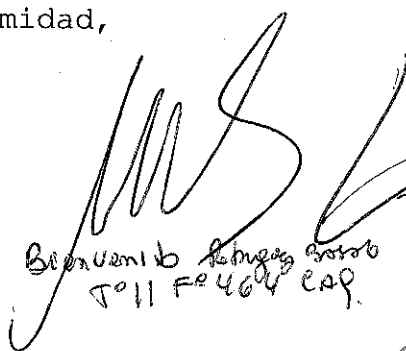 midad,
Bienvenido
Tº 11 Fº 464 CAP.